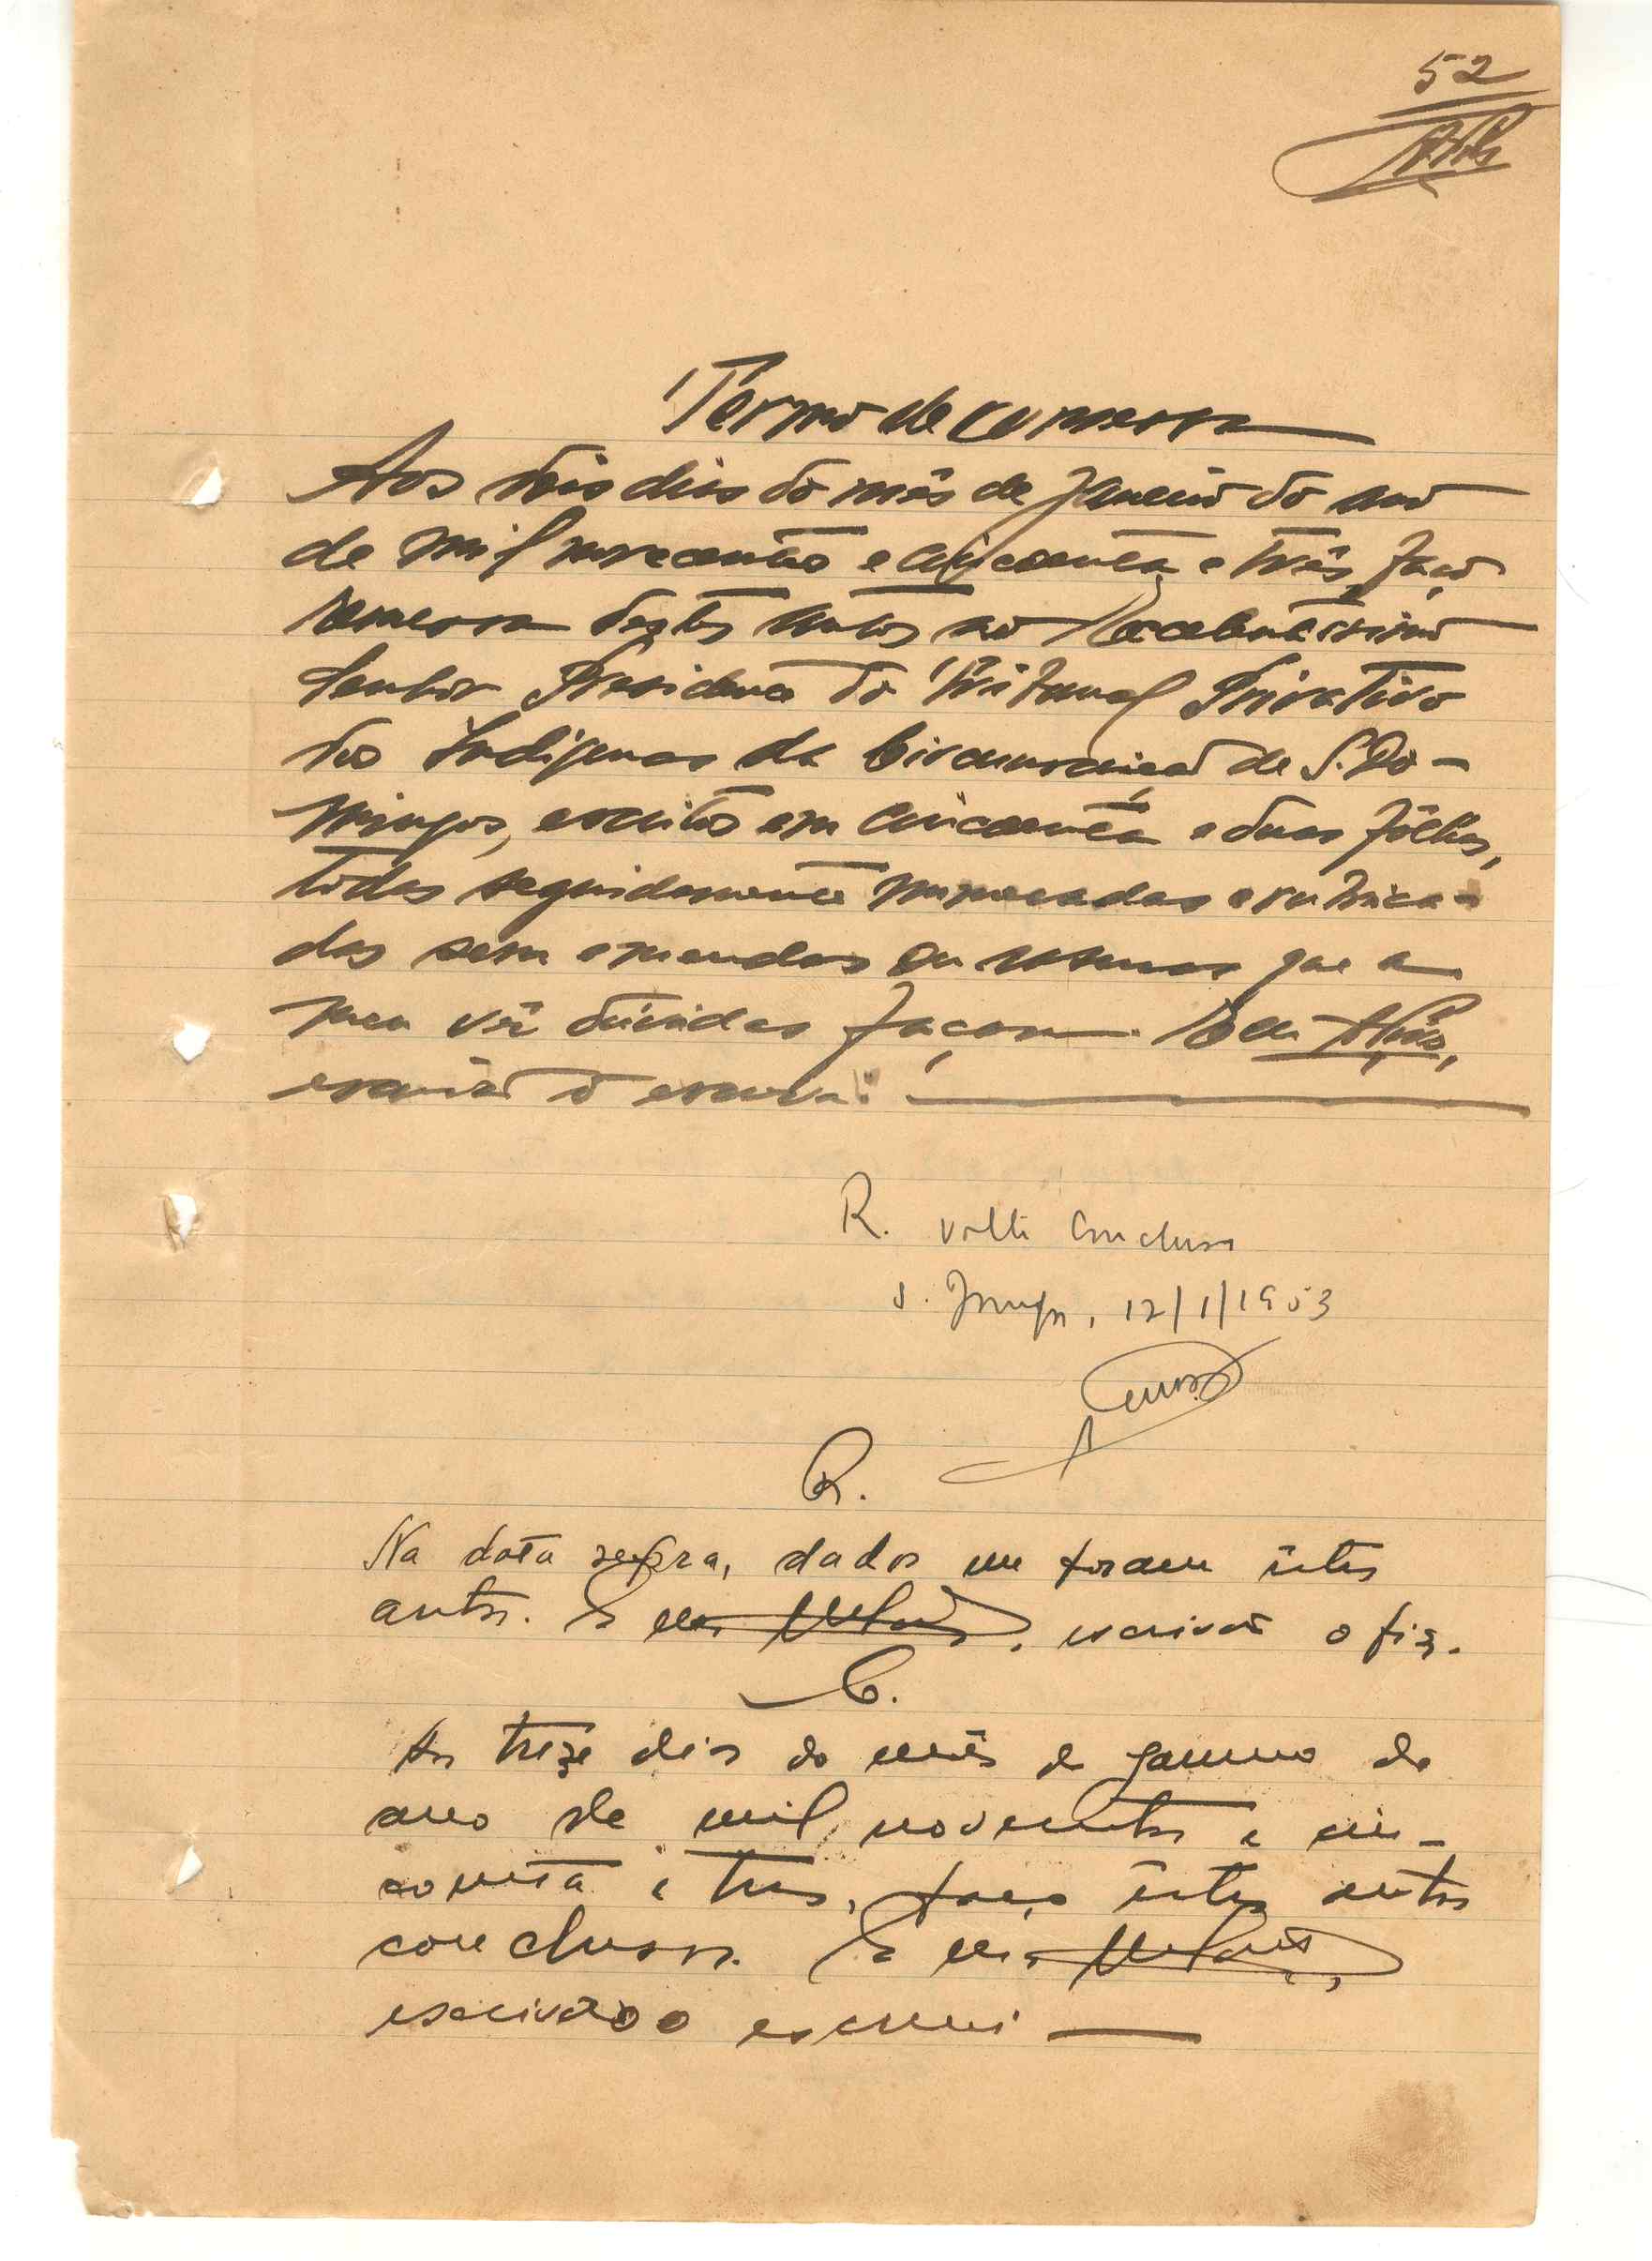 52
Termo de remessa
Aos dois dias do mês de Janeiro do ano
de mil novecentos e cinconta e três, faço
remessa destes autos ao Excelentissimo
Senhor Presidente do Tribunal Privativo
dos Indígenas da Circunscrição de S. Do-
mingos, escritos em cinconta e duas fôlhas,
todas seguidamente numeradas e rubrica-
das sem emendas ou rasuras que a
meu vêr dúvidas façam. Eu
escrivão o escrevi.
R. Volte concluso
S. Domingos, 12/1/1953
R.
Na data supra, dados me foram êstes
autos. E eu, escrivão o fiz.
C.
Aos treze dias do mês de Janeiro do
ano de mil novecentos e cin-
coenta e tres, faço êstes autos
conclusos. E eu,
escrivão o escrevi